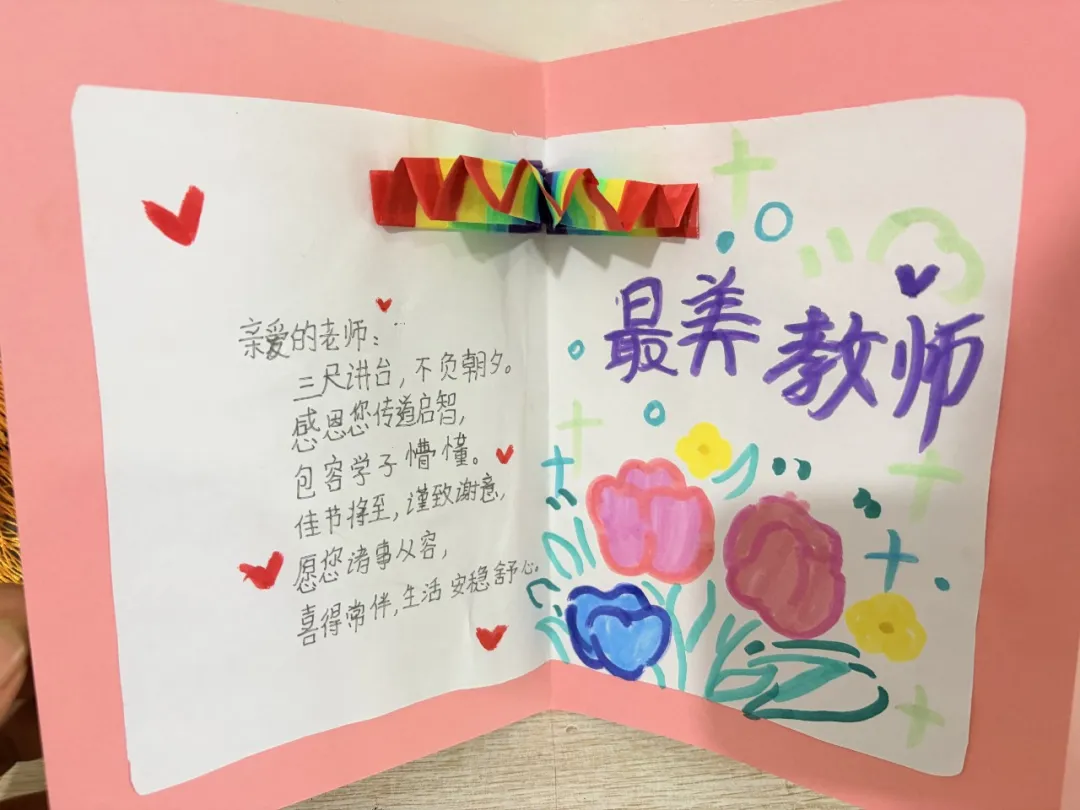 亲爱的老师：
三尺讲台，不负朝夕。
感恩您传道启智，
包容学子懵懂。
佳节将至，谨致谢意，
愿您诸事从容，
喜得常伴，生活安稳舒心。
最美教师